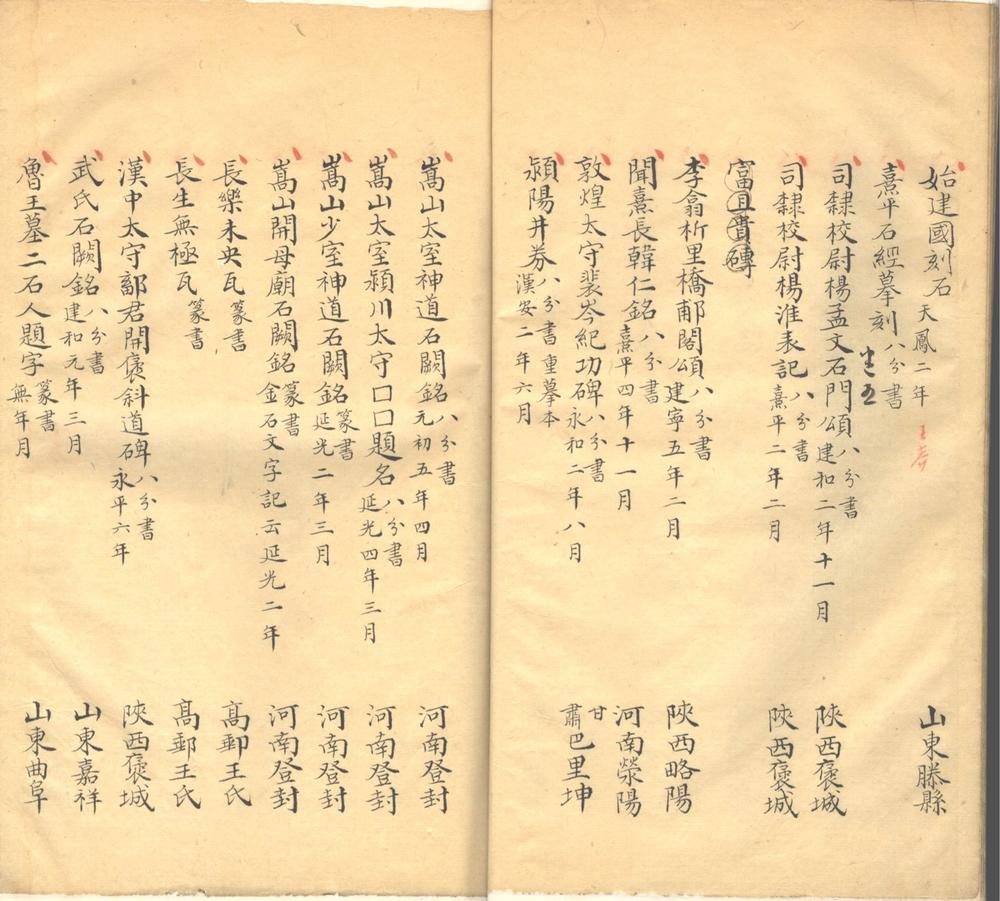 始建國刻石 天鳳二年 山東滕縣
熹平石經摹刻 八分書
司隸校尉楊孟文石門頌 八分書 建和二年十一月 陜西褒城
司隸校尉楊淮表記 八分書 熹平二年二月 陜西褒城
富且貴磚
李翕析里橋郙閣頌 八分書 建寧五年二月 陜西略陽
聞熹長韓仁銘 八分書 熹平四年十一月 河南滎陽
敦煌太守裴岑紀功碑 八分書 永和二年八月 甘肅巴里坤
潁陽井券 八分書 重摹本 漢安二年六月
嵩山太室神道石闕銘 八分書 元初五年四月 河南登封
嵩山太室潁川太守口口題名 八分書 延光四年三月 河南登封
嵩山少室神道石闕銘 篆書 延光二年三月 河南登封
嵩山開母廟石闕銘 篆書 金石文字記云延光二年 河南登封
長樂未央瓦 篆書 高郵王氏
長生無極瓦 篆書 高郵王氏
漢中太守鄐君開褒斜道碑 八分書 永平六年 陜西褒城
武氏石闕銘 八分書 建和元年三月 山東嘉祥
魯王墓二石人題字 篆書 無年月 山東曲阜